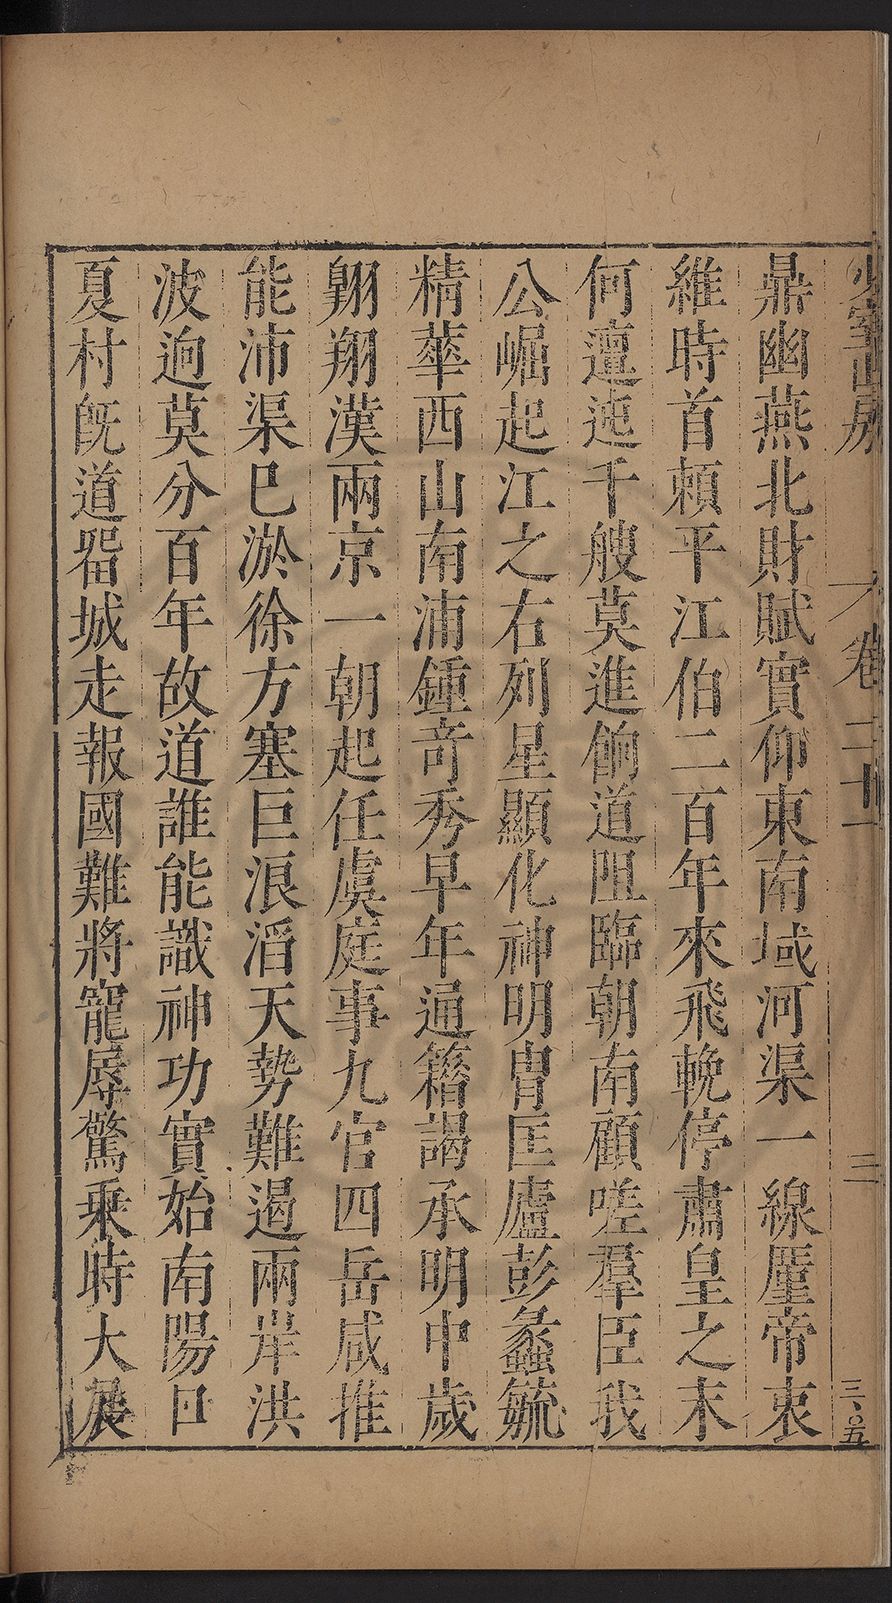 少室山房 卷二十一 三 三、〇五
鼎幽燕北財賦實仰東南域河渠一線厪帝衷
維時首頼平江伯二百年來飛輓停肅皇之末
何邅迍千艘莫進餉道阻臨朝南顧嗟羣臣我
公崛起江之右列星顯化神明胄匡廬彭蠡毓
精華西山南浦鍾竒秀早年通籍謁承明中歲
翺翔漢兩京一朝起任虞庭事九官四岳咸推
能沛渠巳淤徐方塞巨浪滔天勢難遏兩岸洪
波逈莫分百年故道誰能識神功實始南陽口
夏村旣道畱城走報國難將寵辱驚乗時大展